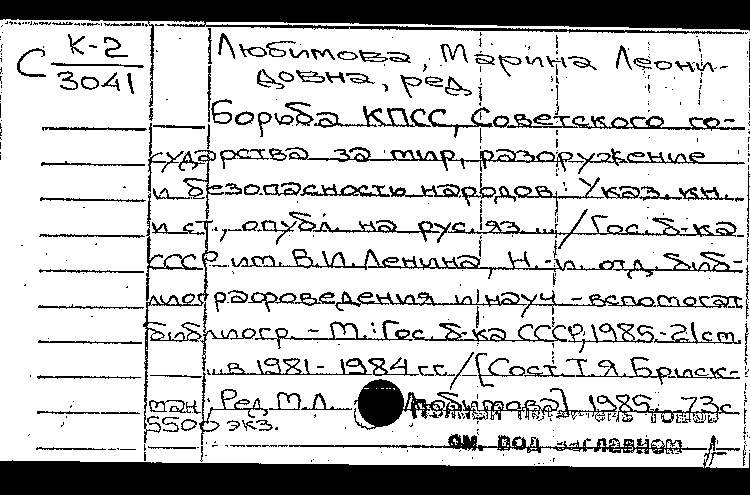 С К-2
3041
Любимова, Марина Леони-
довна, ред.
Борьба КПСС, Советского го-
сударства за мир, разоружение
и безопасность народов: Указ. кн.
и ст., опубл. на рус. яз. ... / Гос. б-ка
СССР им. В.И. Ленина, Н.-и. отд. биб-
лиографоведения и науч.-вспомогат.
библиогр. - М.: Гос. б-ка СССР, 1985.-21см.
...в 1981-1984 гг. / [Сост. Т.Я. Бриск-
ман; Ред. М.Л. Любимова] 1985. 73с.
5500 экз.
Полный перечень томов
см. под заглавием